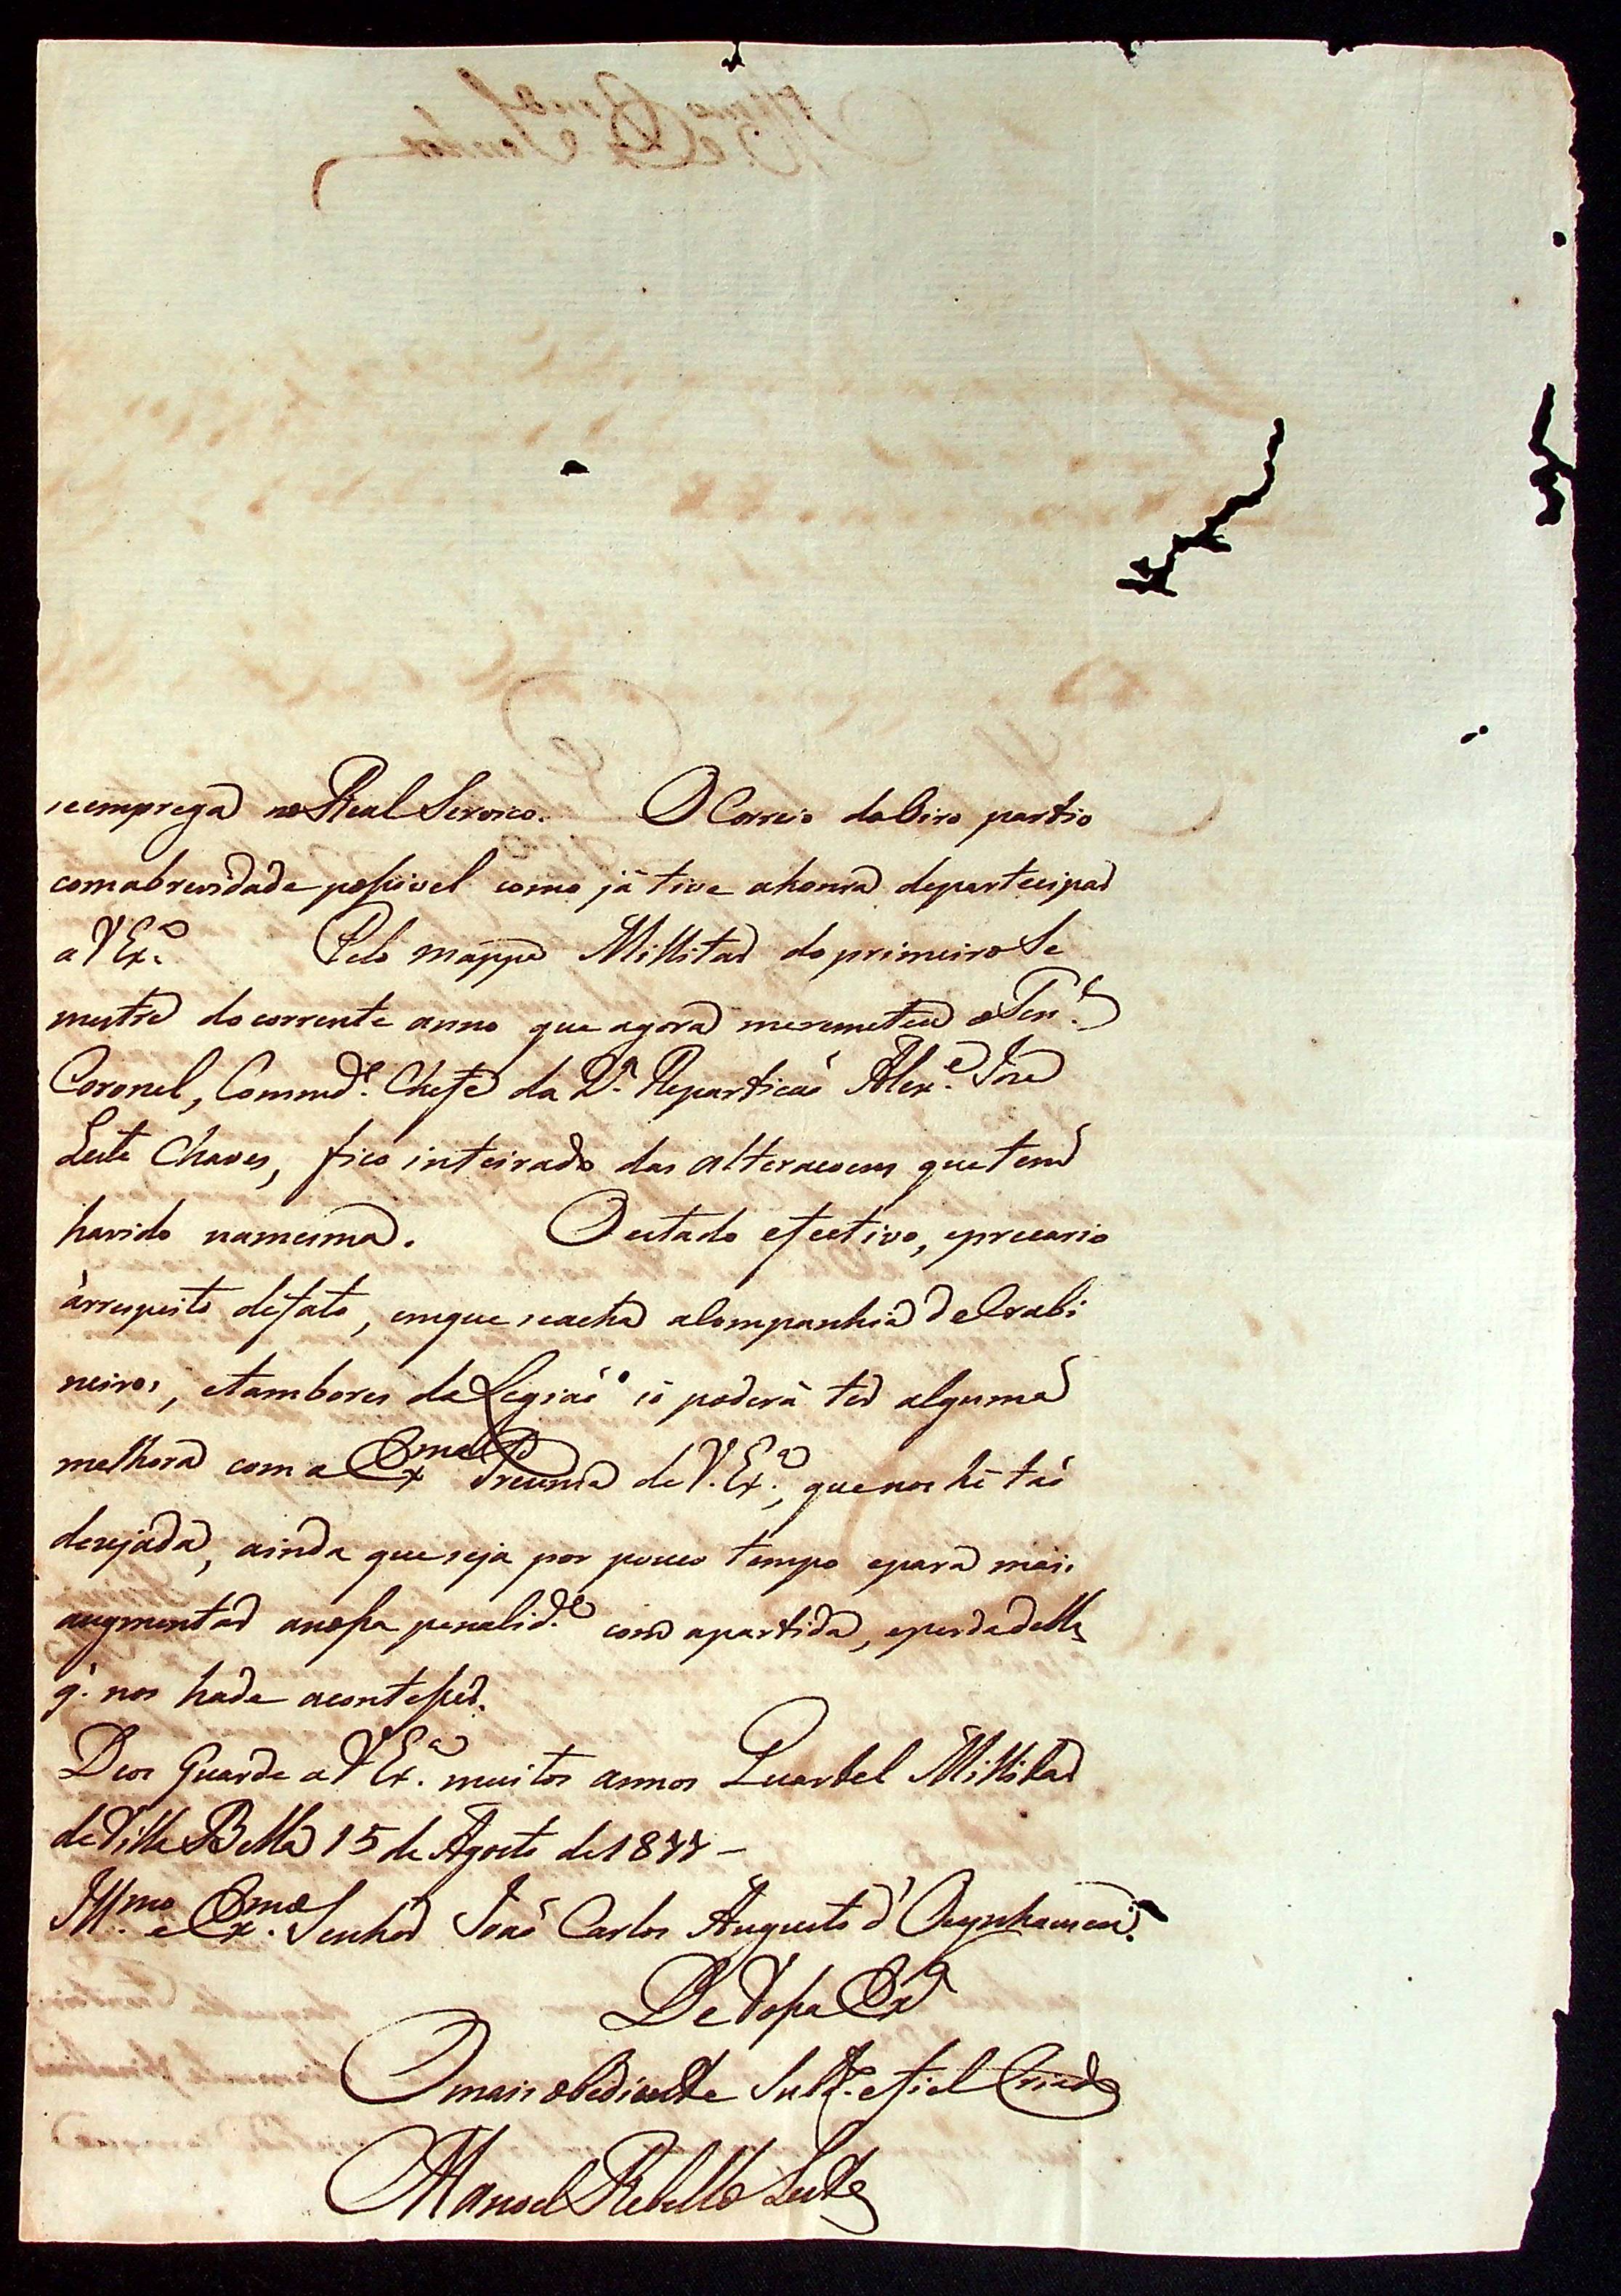 se emprega no Real Servico. O Correio do Giro partio
com abrevidade possivel como já tive ahonra departecipar
a V Ex.ª Pelo mappa Millitar do primeiro Se
mestre do corrente anno que agora me remeteu o Ten.e
Coronel, Commd.e Chefe da 2.ª Reparticaõ Alex.e Jose
Leite Chaves, fico inteirado das alteracoens que tem
havido na mesma. O estado efectivo, eprecario
àrrespeito defato, em que seacha a Companhia de Crabi
neiros, etambores da Legiaõ só poderá ter alguma
melhora com a Exma Prezenca de V. Ex.ª, que nos hé taõ
desejada, ainda que seja por pouco tempo epara mais
augmentar anossa penalid.e com apartida, eperda della
q. nos hade acontesser.
Deos Guarde a V Ex.ª muitos annos Quartel Millitar
de Villa Bella 15 de Agosto de 1811 -
Ill.mo e Ex.mo Senhor Joaõ Carlos Augusto d'Oeynhausen.
De Vossa Exª
O mais obediente Subd.º e fiel Criado
Manoel Rebello Leite